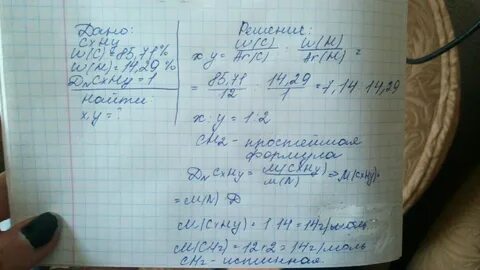 Дано:
CxHy
W(C)=85,71%
W(H)=14,29%
D_N CxHy=1
Найти:
x,y=?
Решение:
x:y= W(C)/Ar(C) : W(H)/Ar(H) =
= 85,71/12 : 14,29/1 = 7,14:14,29
x:y=1:2
CH2-простейшая
формула
D_N CxHy= M(CxHy)/M(N) ⇒ M(CxHy)=
=M(N) D
M(CxHy)=1·14=14г/моль
M(CH2)=12+2=14г/моль
CH2-истинная.